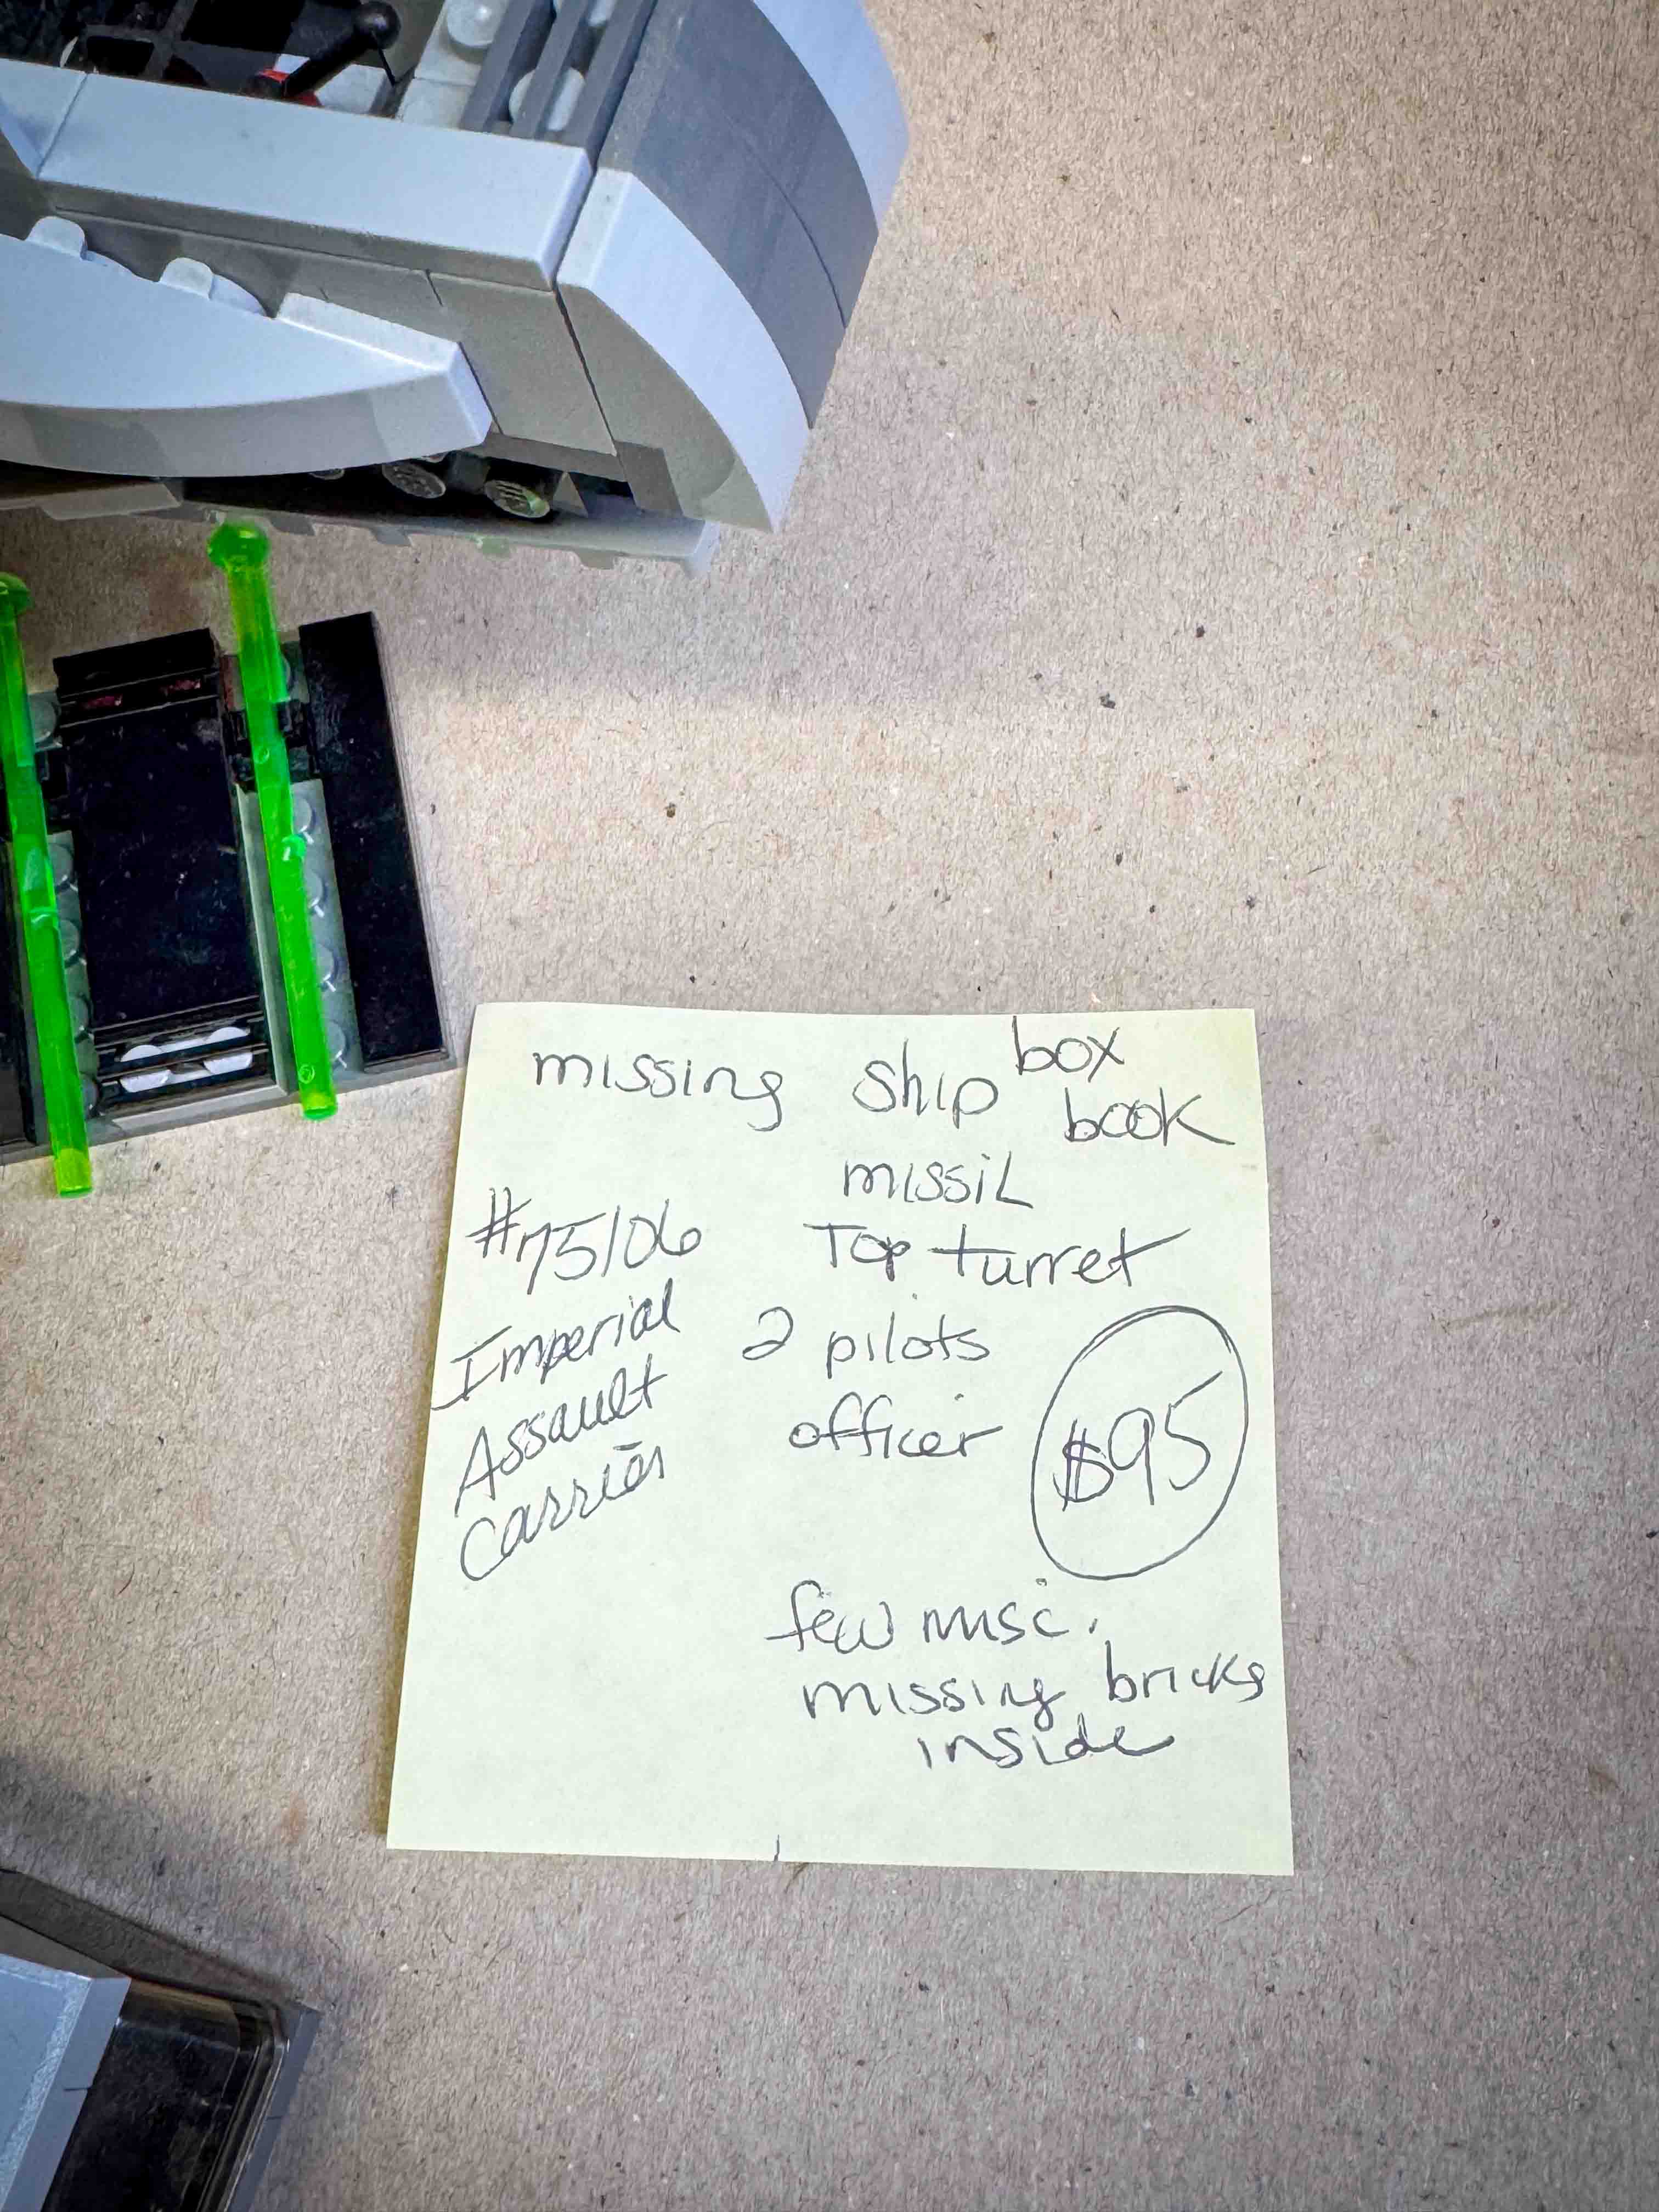 missing ship box
book
missil
#75106
Top turret
Imperial
Assault
Carrier
2 pilots
officer
$95
few misc.
missing bricks
inside